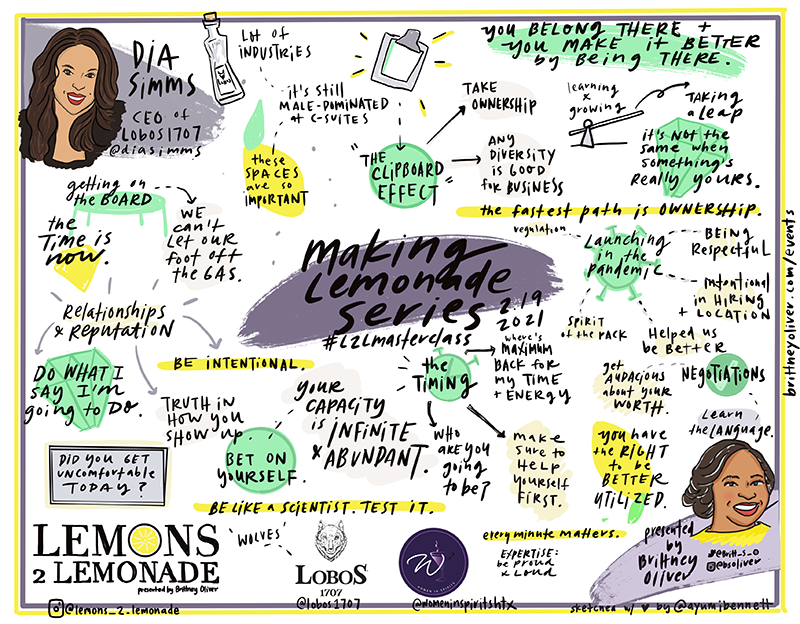 DIA
SIMMS
CEO of
LOBOS 1707
@diasimms
LOT OF
INDUSTRIES
it's still
MALE-DOMINATED
at C-SUITES
these
SPACES
are so
IMPORTANT
"THE
CLIPBOARD
EFFECT"
TAKE
OWNERSHIP
ANY
DIVERSITY
IS GOOD
for BUSINESS
YOU BELONG THERE +
YOU MAKE it BETTER
by Being THERE.
learning
&
growing
TAKING
a LEAP
it's NOT the
SAME when
SOMETHING'S
REALLY YOURS.
the fastest path is OWNERSHIP.
getting on
the BOARD
the
Time is
now.
WE
can't
LET OUR
FOOT OFF
the GAS.
Relationships
& REPUTATION
DO WHAT I
SAY I'M
going to DO.
TRUTH IN
HOW YOU
SHOW UP.
making
Lemonade
Series
2.19
2021
#L2Lmasterclass
regulation
Launching
in the
pandemic
BEING
Respectful
Intentional
in HIRING
+ LOCATION
SPIRIT
of the PACK
Helped us
be BetteR
BE INTENTIONAL.
the
TIMING
where's
MAXIMUM
BACK for
my TIME
+ ENERGY
WHO
ARE YOU
going
to be?
MAKE
SURE to
HELP
YOURSELF
FIRST.
get
AUDACIOUS
about YOUR
WORTH.
NEGOTIATIONS
Learn
the LANGUAGE.
YOU have
the RIGHT
to be
BETTER
UTILIZED.
BET ON
YOURSELF.
YOUR
CAPACITY
is INFINITE
& ABUNDANT.
DID YOU GET
UNCOMFORTABLE
TODAY?
BE LIKE a SCIENTIST. TEST IT.
every minute matters.
EXPERTISE:
be PROUD
& LOUD
'WOLVES'
LEMONS
2 LEMONADE
presented by Brittney Oliver
@lemons_2_lemonade
LOBOS
1707
@lobos1707
W
WOMEN IN SPIRITS
@womeninspiritshtx
presented
by
Brittney
Oliver
@Britt_S_O
@bsoliver
sketched w/ ♥ by @ayumibennett
brittneyoliver.com/events